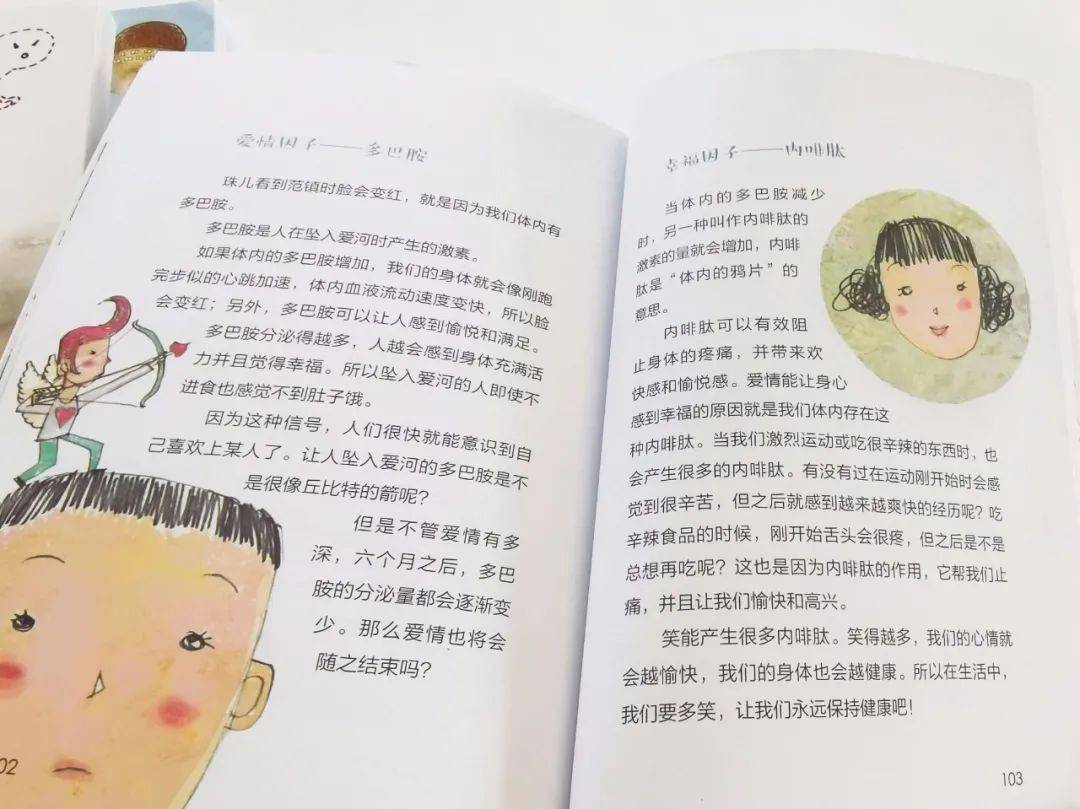 爱情因子——多巴胺
珠儿看到范镇时脸会变红，就是因为我们体内有
多巴胺。
多巴胺是人在坠入爱河时产生的激素。
如果体内的多巴胺增加，我们的身体就会像刚跑
完步似的心跳加速，体内血液流动速度变快，所以脸
会变红；另外，多巴胺可以让人感到愉悦和满足。
多巴胺分泌得越多，人越会感到身体充满活
力并且觉得幸福。所以坠入爱河的人即使不
进食也感觉不到肚子饿。
因为这种信号，人们很快就能意识到自
己喜欢上某人了。让人坠入爱河的多巴胺是不
是很像丘比特的箭呢？
但是不管爱情有多
深，六个月之后，多巴
胺的分泌量都会逐渐变
少。那么爱情也将会
随之结束吗？
02
幸福因子——内啡肽
当体内的多巴胺减少
时，另一种叫作内啡肽的
激素的量就会增加，内啡
肽是“体内的鸦片”的
意思。
内啡肽可以有效阻
止身体的疼痛，并带来欢
快感和愉悦感。爱情能让身心
感到幸福的原因就是我们体内存在这
种内啡肽。当我们激烈运动或吃很辛辣的东西时，也
会产生很多的内啡肽。有没有过在运动刚开始时会感
觉到很辛苦，但之后就感到越来越爽快的经历呢？吃
辛辣食品的时候，刚开始舌头会很疼，但之后是不是
总想再吃呢？这也是因为内啡肽的作用，它帮我们止
痛，并且让我们愉快和高兴。
笑能产生很多内啡肽。笑得越多，我们的心情就
会越愉快，我们的身体也会越健康。所以在生活中，
我们要多笑，让我们永远保持健康吧！
103